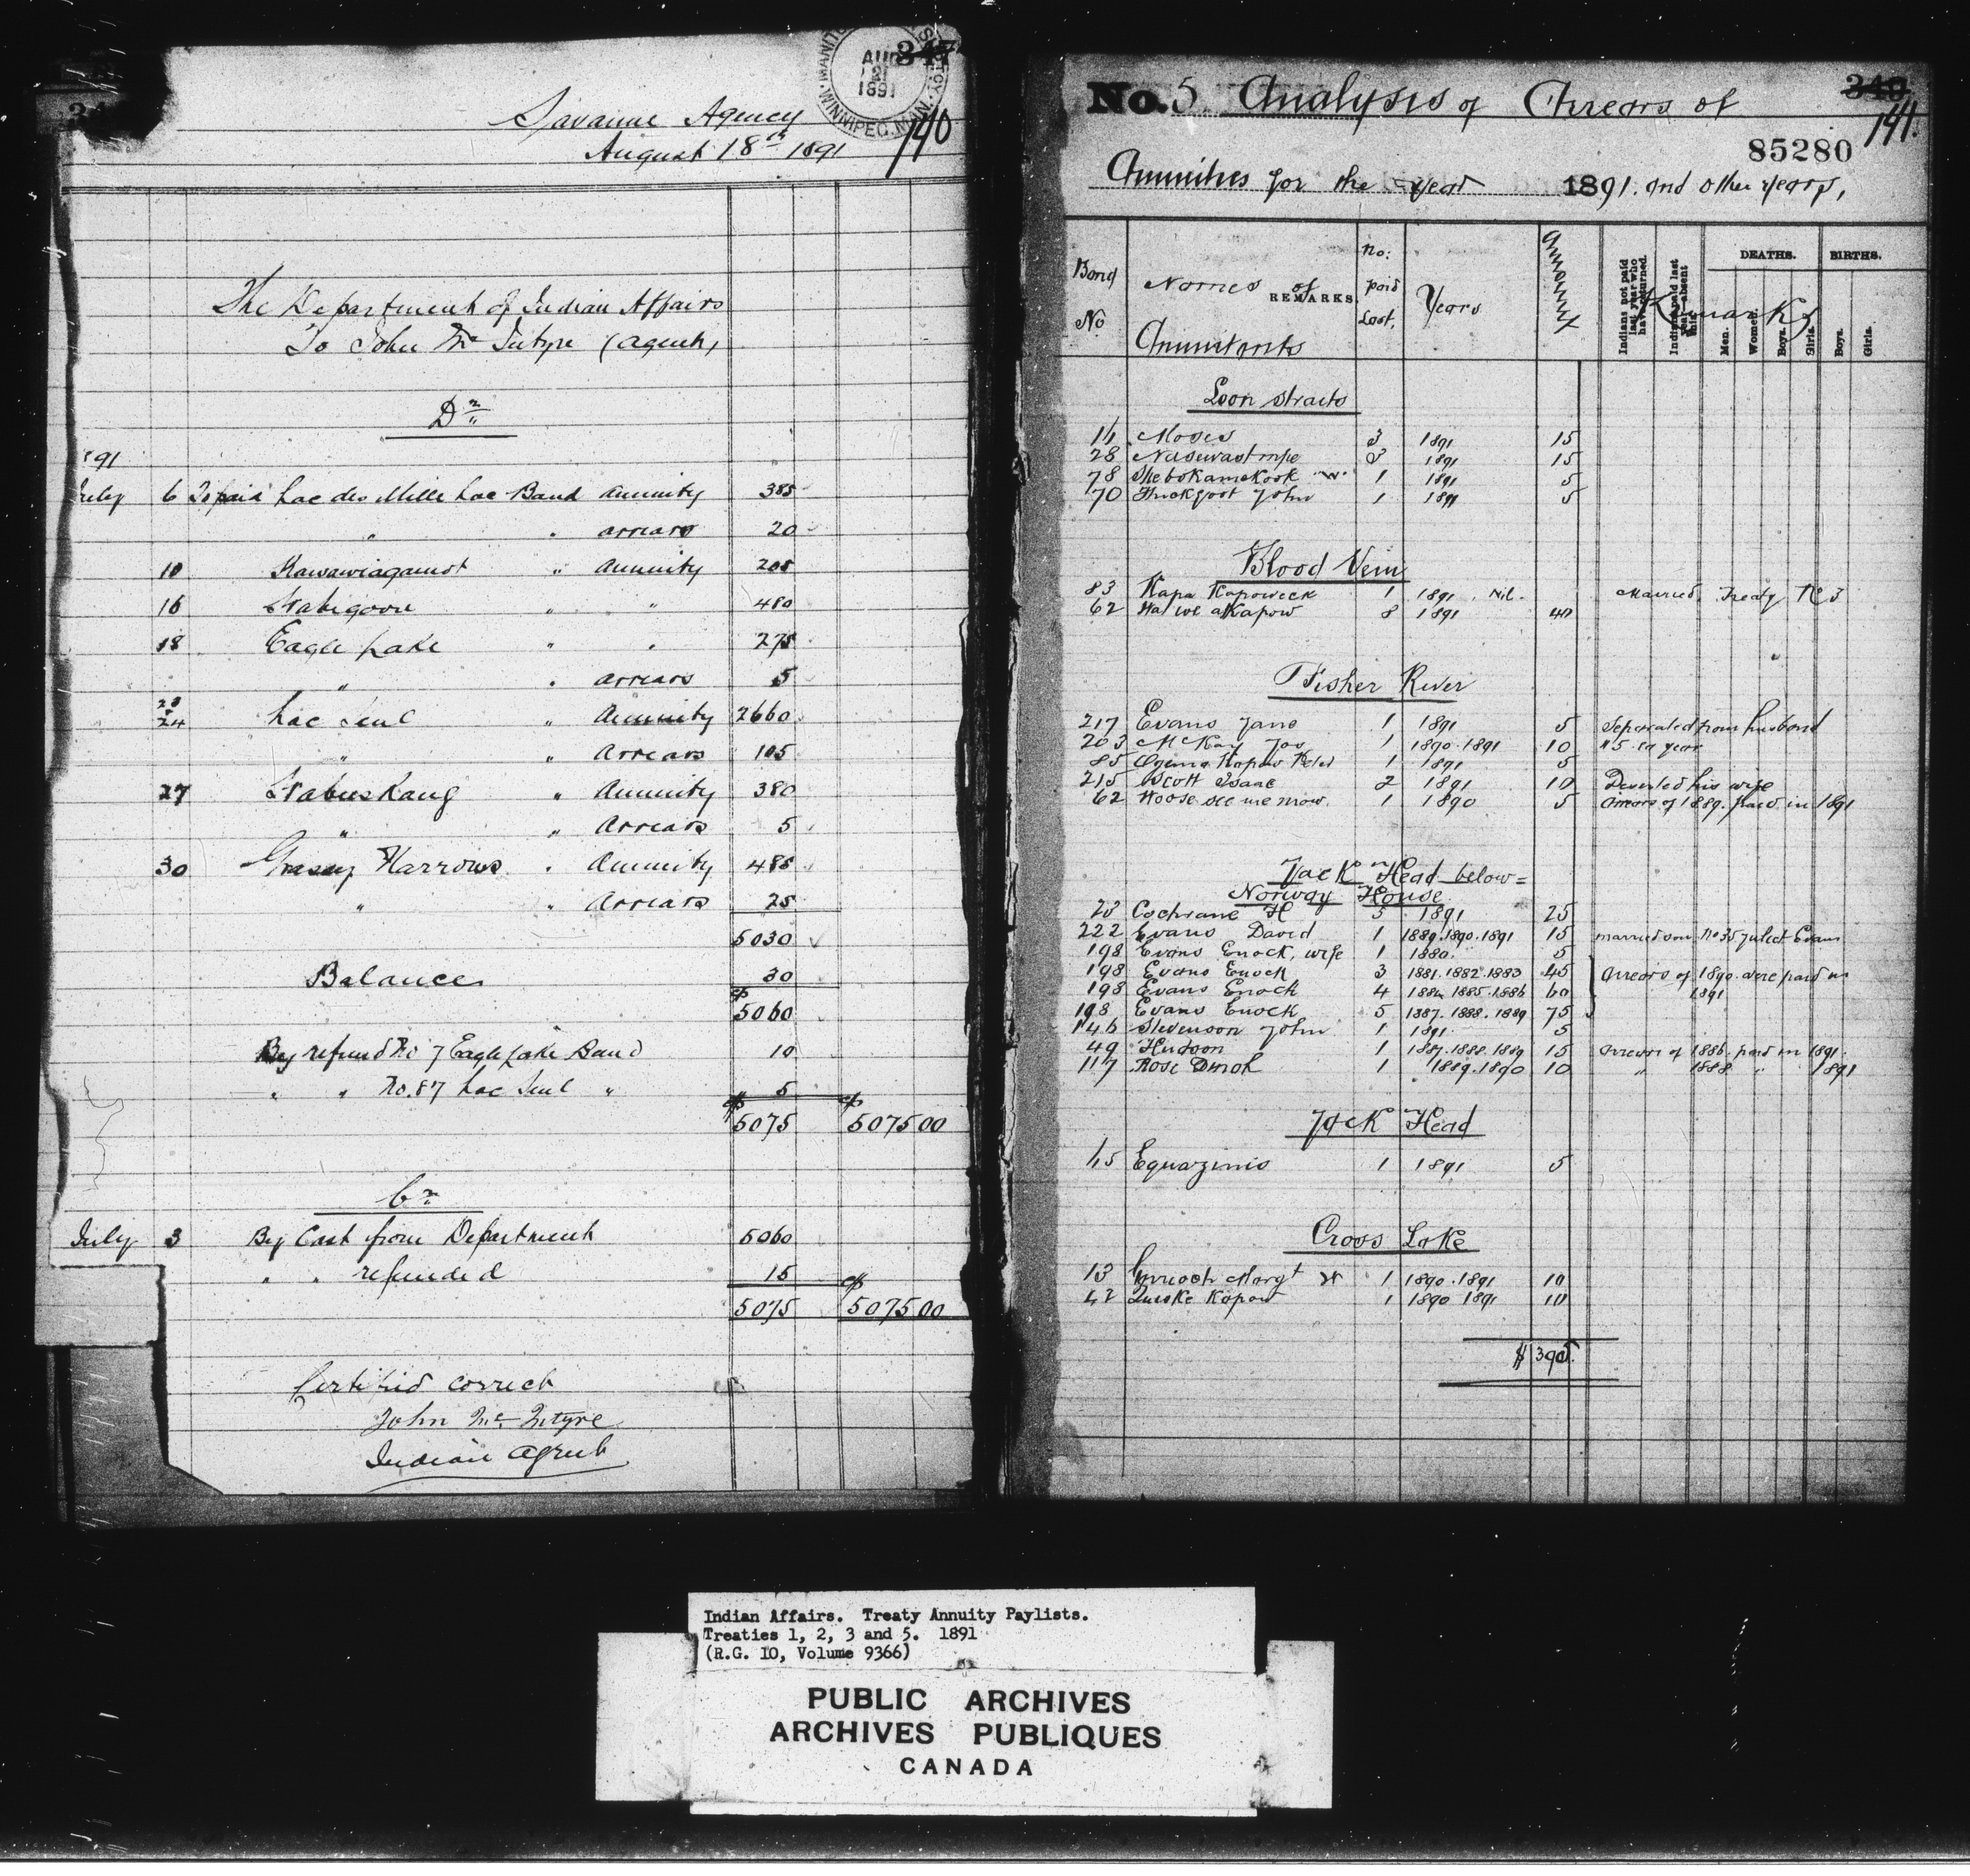 347
MANITO
AUG
21
1891
WINNIPEG, MAN.
140
Savanne Agency
August 18th 1891
The Department of Indian Affairs
To John McIntyre (agent)
Dr
'91
July 6 To paid Lac des Mille Lac Band Annuity 385
" " arrears 20
10 Kawawiagamot " Annuity 205
16 Wabigoon " " 480
18 Eagle Lake " " 275
" " arrears 5
23 & 24 Lac Seul " Annuity 2660
" " Arrears 105
27 Wabuskang " Annuity 380
" " Arrears 5
30 Grassy Narrows " Annuity 485
" " Arrears 25
5030
Balance 30
$ 5060
By refund No 7 Eagle Lake Band 10
" " No. 87 Lac Seul " 5
$ 5075 $ 5075 00
Cr
July 3 By Cash from Department 5060
" " refunded 15
5075 $ 5075 00
Certified correct
John McIntyre
Indian Agent
No. 5 Analysis of Arrears of
340
141.
85280
Annuities for the year 1891. and other years,
Band No
Names of Annuitants
REMARKS.
No: paid Last,
Years
Amount
Remarks
Indians not paid last year who have returned.
Indians paid last year—absent this.
DEATHS.
Men.
Women.
Boys.
Girls.
BIRTHS.
Boys.
Girls.
Loon Straits
14 Moses 3 1891 15
28 3 1891 15
78 Shebokamekook "W" 1 1891 5
70 John 1 1891 5
Blood Vein
83 Kapa Kapoweck 1 1891 . Nil. Married, Treaty No 3
62 Na we akapow 8 1891 40
Fisher River
217 Evans Jane 1 1891 5 Separated from husband
203 McKay Jos 1 1890. 1891 10 $5. ea year
85 Ogema Kapow Peter 1 1891 5
215 Scott Isaac 2 1891 10 Deserted his wife
62 Woose see me mow. 1 1890 5 Arrears of 1889. paid in 1891
Jack Head below =
Norway House
23 Cochrane H 5 1891 25
222 Evans David 1 1889.1890.1891 15 married son No 35 Juliet Evans
198 Evans Enock, wife 1 1880. 5
198 Evans Enock 3 1881.1882.1883 45 Arrears of 1890. were paid in
198 Evans Enock 4 1884.1885.1886 60 1891
198 Evans Enock 5 1887.1888.1889 75
146 Stevenson John 1 1891. 5
49 Hudson 1 1887.1888.1889 15 Arrears of 1886. paid in 1891.
117 Rose Dinah 1 1889.1890 10 " 1888 " 1891
Jack Head
45 Equazinis 1 1891 5
Cross Lake
13 Margt W 1 1890.1891 10
42 Kapow 1 1890 1891 10
$ 390.
Indian Affairs. Treaty Annuity Paylists.
Treaties 1, 2, 3 and 5. 1891
(R.G. 10, Volume 9366)
PUBLIC ARCHIVES
ARCHIVES PUBLIQUES
CANADA